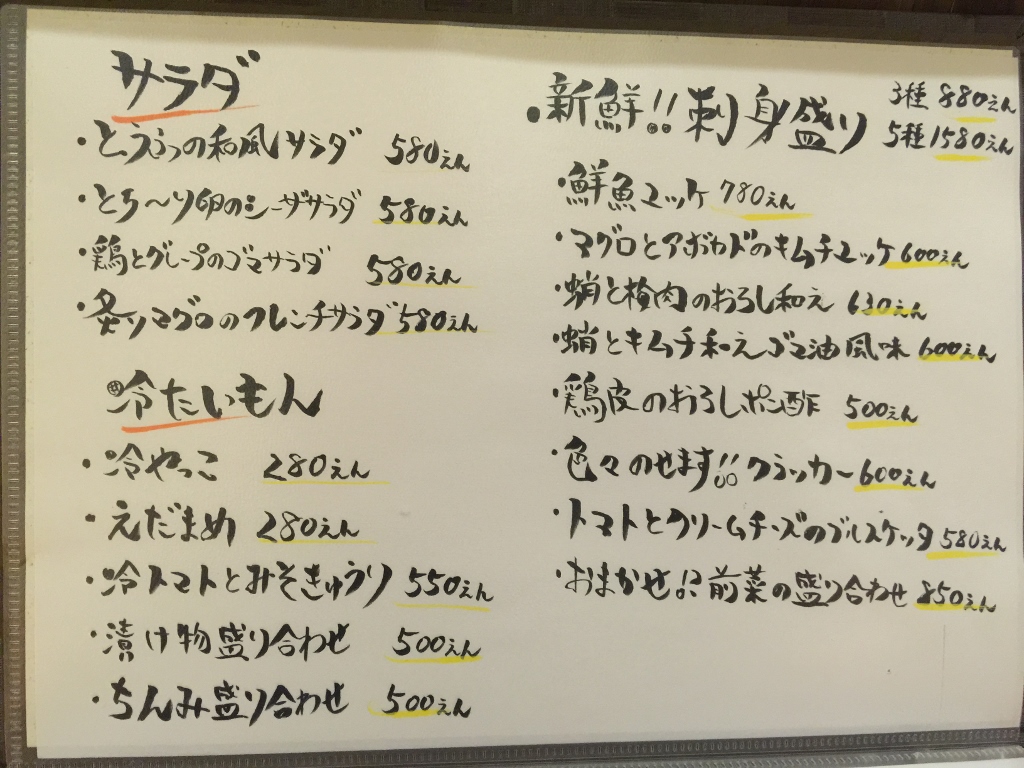 サラダ
・とうふの和風サラダ 580えん
・とろ〜り卵のシーザサラダ 580えん
・鶏とグレープのゴマサラダ 580えん
・炙りマグロのフレンチサラダ 580えん
冷たいもん
・冷やっこ 280えん
・えだまめ 280えん
・冷トマトとみそきゅうり 550えん
・漬け物盛り合わせ 500えん
・ちんみ盛り合わせ 500えん
・新鮮!!刺身盛り 3種 880えん
5種 1580えん
・鮮魚ユッケ 780えん
・マグロとアボカドのキムチユッケ 600えん
・蛸と梅肉のおろし和え 630えん
・蛸とキムチ和えゴマ油風味 600えん
・鶏皮のおろしポン酢 500えん
・色々のせます!! クラッカー 600えん
・トマトとクリームチーズのブルスケッタ 580えん
・おまかせ!? 前菜の盛り合わせ 850えん